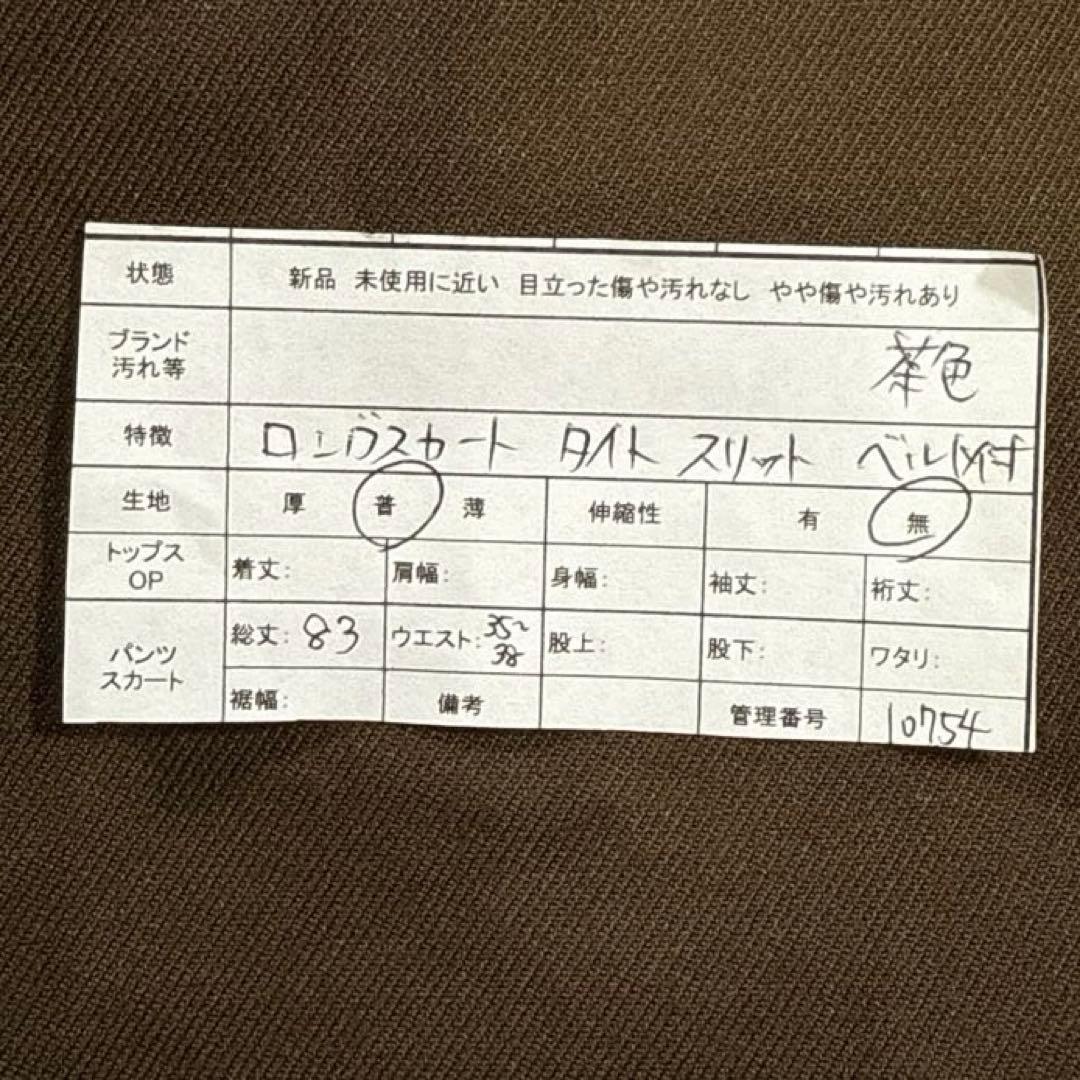 状態 新品 未使用に近い 目立った傷や汚れなし やや傷や汚れあり
ブランド
汚れ等 茶色
特徴 ロングスカート タイト スリット ベルト付
生地 厚 普 薄 伸縮性 有 無
トップス
OP 着丈: 肩幅: 身幅: 袖丈: 裄丈:
パンツ
スカート 総丈: 83 ウエスト: 35~38 股上: 股下: ワタリ:
裾幅: 備考 管理番号 10754